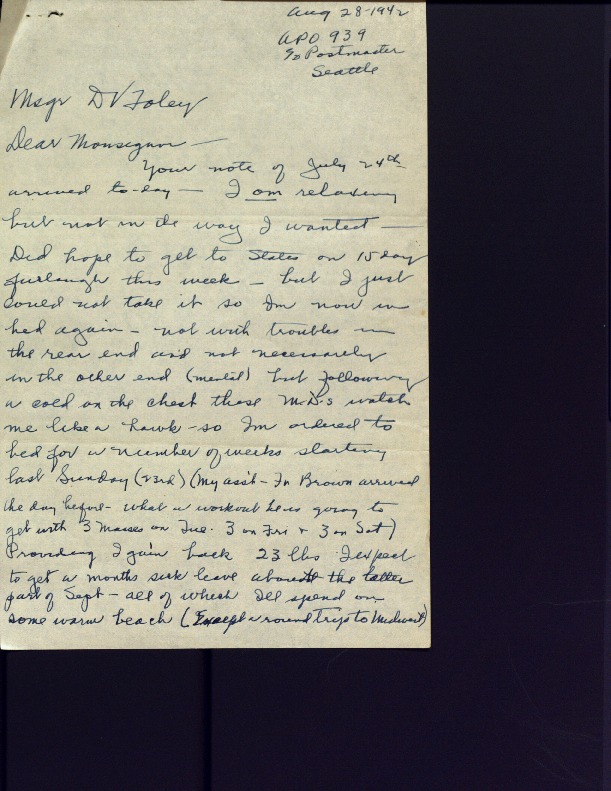 Aug 28-1942
APO 939
c/o Postmaster
Seattle
Msgr DV Foley
Dear Monsignor —
Your note of July 24th
arrived to-day — I am relaxing
but not in the way I wanted —
Did hope to get to States on 15 day
furlough this week — but I just
could not take it so Im now in
bed again — not with troubles in
the rear end and not necessarily
in the other end (mental) but following
a cold on the chest these M.D.s watch
me like a hawk - so Im ordered to
bed for a number of weeks starting
last Sunday (23rd) (My ass't - Fr Brown arrived
the day before - what a workout he is going to
get with 3 Masses on Tue. 3 on Fri + 3 on Sat)
Providing I gain back 23 lbs I expect
to get a months sick leave about the latter
part of Sept - all of which Ill spend on
some warm beach (Except a round trip to Midwest)